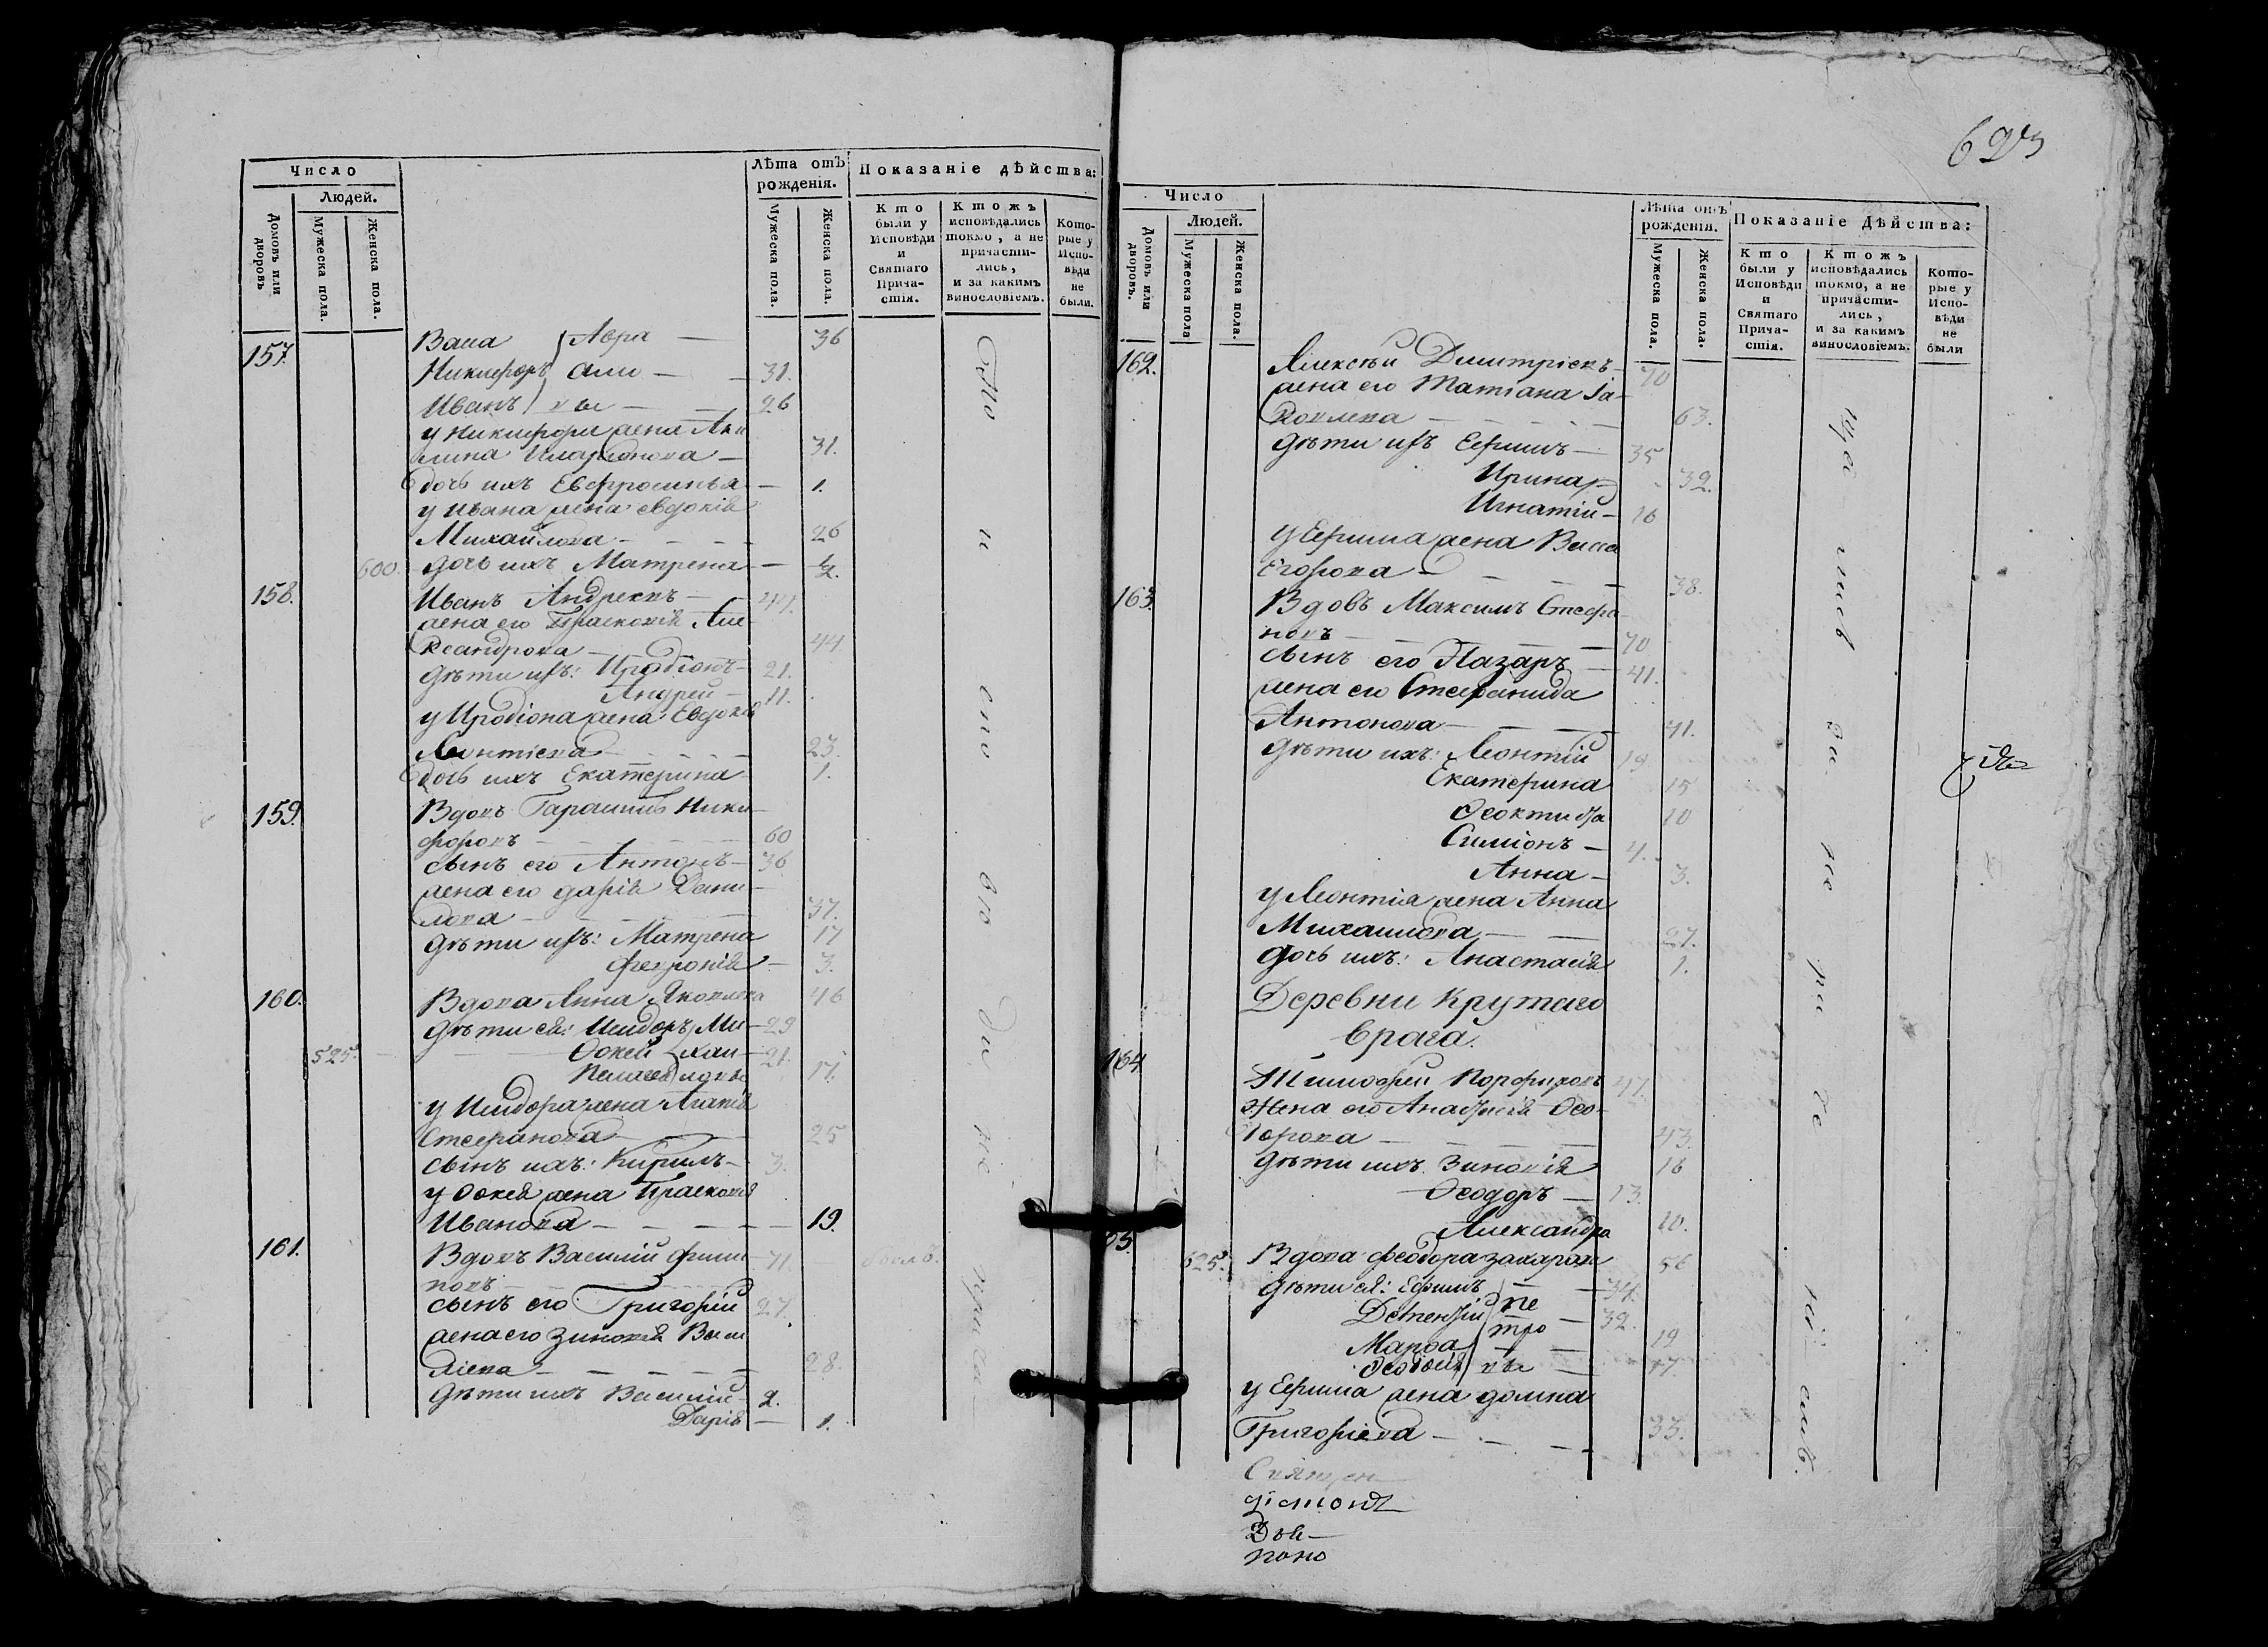 Число
Людей.
Домовъ или дворовъ
Мужеска пола.
Женска пола.
Лѣта отъ рожденія.
Мужеска пола.
Женска пола.
Показаніе дѣйства:
Кто были у Исповѣди и Святаго Причастія.
Ктожъ исповѣдались токмо, а не причастились, и за какимъ винословіемъ.
Которые у Исповѣди не были.
Васса } Авра — 36
157. Никифоръ } ами — 31.
Иванъ } вы — 26
у Никифора жена Аки
лина Иларионова — 31.
дочь ихъ Евфросинья — 1.
у Ивана жена Евдокія
Михайлова — 26
600. дочь ихъ Матрена —
158. Иванъ Андреевъ — 44.
жена его Прасковія Але-
ксандрова — 44.
дѣти ихъ: Иродіонъ — 21.
Андрей — 11.
у Иродіона жена Евдокія
Леонтіева — 23.
дочь ихъ Екатерина 1.
159. Вдовъ Гарасимъ Ники-
форовъ — 60
сынъ его Антонъ — 36
жена его Дарія Дани-
лова — 37.
дѣти ихъ: Матрена 17
Февронія — 3.
160. Вдова Анна Яковлева 46
дѣти ея: Исидоръ } Ми — 29
525. Фокей } хаи — 21.
Пелагея } ловы 17.
у Исидора жена Агапія
Стефанова — 25
сынъ ихъ: Кирилъ — 3.
у Фокея жена Прасковія
Иванова — 19.
161. Вдовъ Василий Фили-
повъ — 71.
сынъ его Григорій 27.
жена его Зиновія Васи
ліева — 28.
дѣти ихъ Василій — 2.
Дарія — 1.
Сто и сто во
не
Число
Людей.
Домовъ или дворовъ.
Мужеска пола
Женска пола.
Лѣта отъ рожденія.
Мужеска пола.
Женска пола.
Показаніе Дѣйства:
Кто были у Исповѣди и Святаго Причастія.
Ктожъ исповѣдались токмо, а не причастились, и за какимъ винословіемъ.
Которые у Исповѣди не были
162. Алексѣй Димитріевъ — 70
жена его Татіана Іа-
ковлева — 63.
дѣти ихъ Ефимъ — 35
Ирина — 32.
Игнатій — 16
у Ефима жена Васса
Егорова — 38.
163. Вдовъ Максимъ Стефа-
новъ — 70
сынъ его Лазарь — 41.
жена его Стефанида
Антонова — 41.
дѣти ихъ: Леонтій 19
Екатерина 15
Феоктиста 10
Симіонъ — 4.
Анна — 3.
у Леонтія жена Анна
Михаилова — 27.
дочь ихъ: Анастасія 1.
Деревни Крутаго
врага.
164. Тимофей Порфировъ 47.
Жена его Анастасія Фео-
дорова — 43.
дѣти ихъ Зиновія 16
Феодоръ — 13.
Александра 10.
65. 625. Вдова Феодора Захарова 56
дѣти ея: Ефимъ } — 34.
} пе
} тро — 32.
Марфа } — 19
Феодосія } вы — 17.
у Ефима жена Домна
Григоріева — 33.
Священ